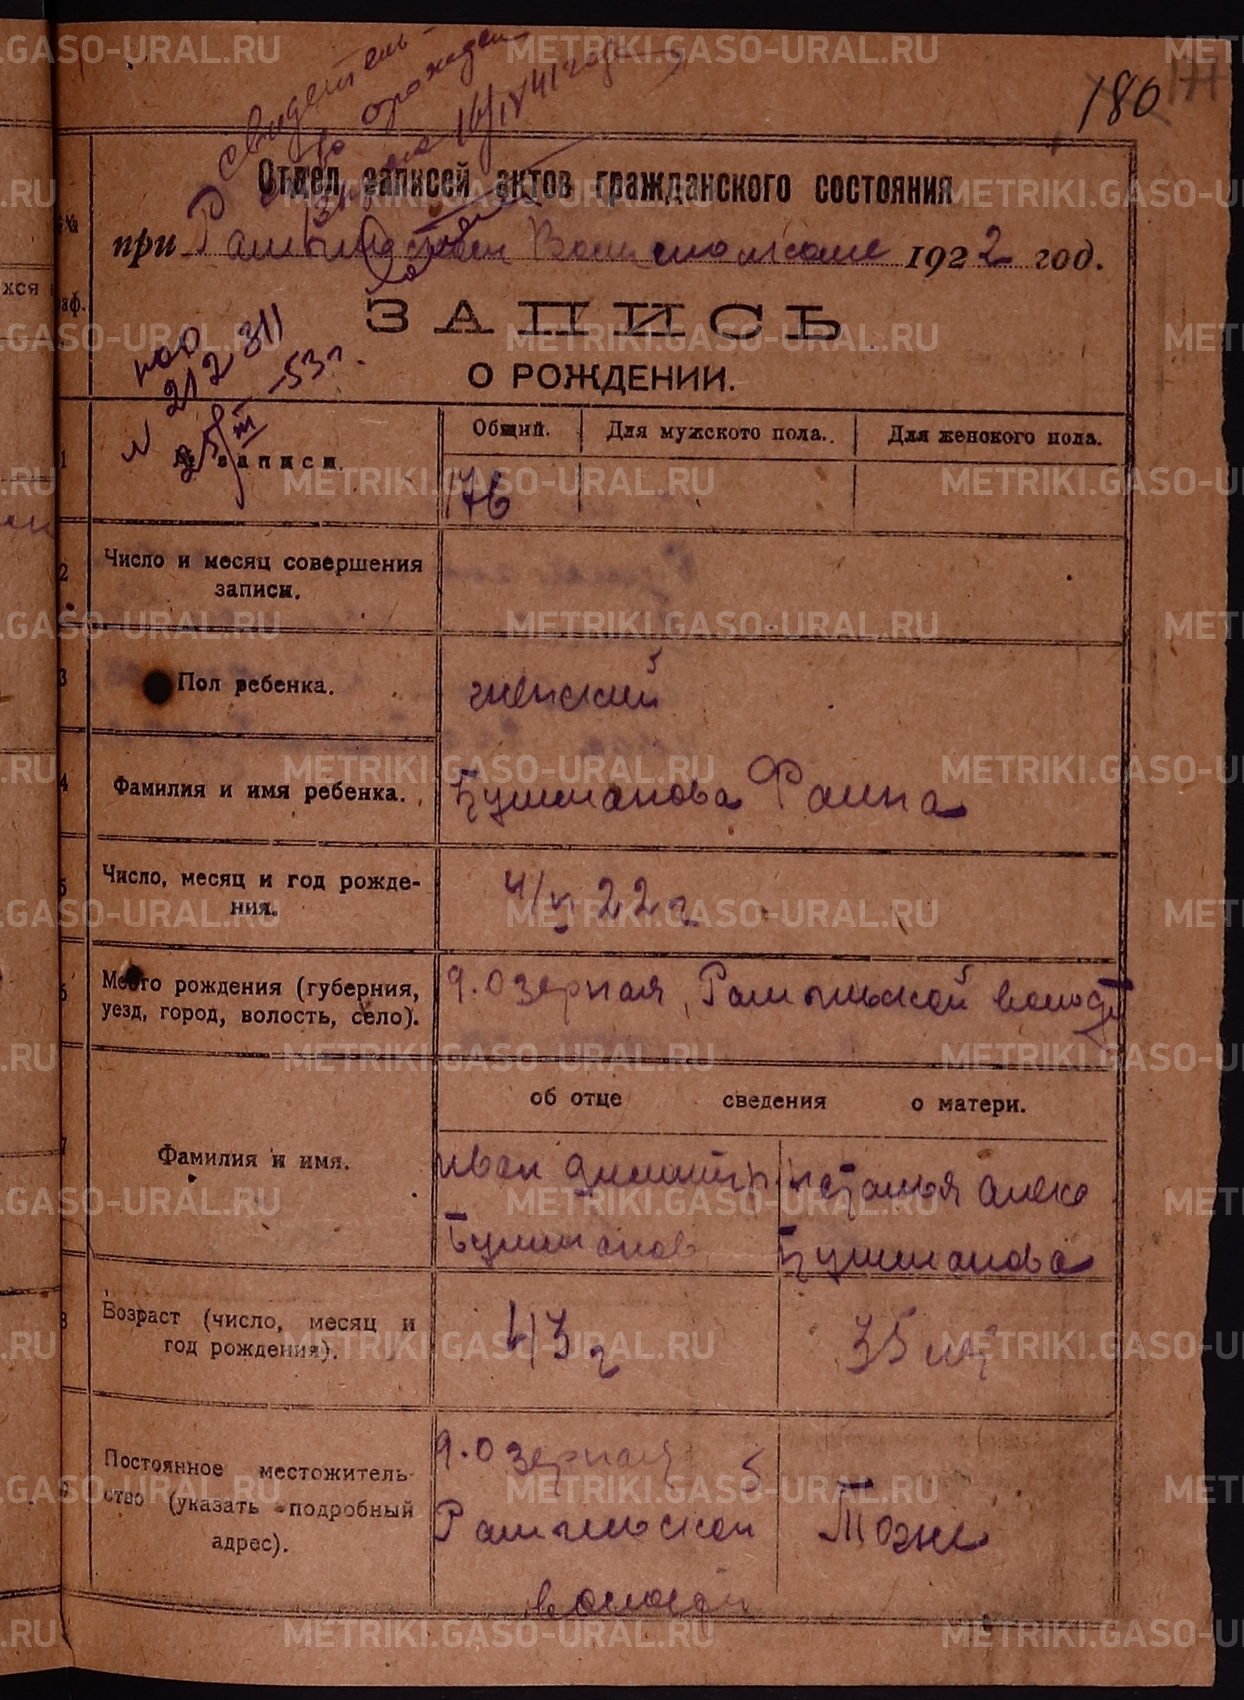 180
171
свидетель-
во о рожден
16/IV 41 год
Отдел записей актов гражданского состояния
при Рамыльском Волисполкоме 1922 год.
ЗАПИСЬ
О РОЖДЕНИИ.
№ 212311
25/III -53 г.
Общий. Для мужского пола. Для женского пола.
1 № записи. 176
2 Число и месяц совершения
записи.
3 Пол ребенка. женский
4 Фамилия и имя ребенка. Бушманова Фаина
5 Число, месяц и год рожде-
ния. 4/V 22 г
6 Место рождения (губерния,
уезд, город, волость, село). д. Озерная, Рамыльской волости
об отце сведения о матери.
7 Фамилия и имя.
Иван Димитр Наталья Алекс
Бушманов Бушманова
8 Возраст (число, месяц и
год рождения). 43 г 35 лет
Постоянное местожитель-
ство (указать подробный
адрес).
д. Озерная
Рамыльской Тоже
волости
METRIKI.GASO-URAL.RU